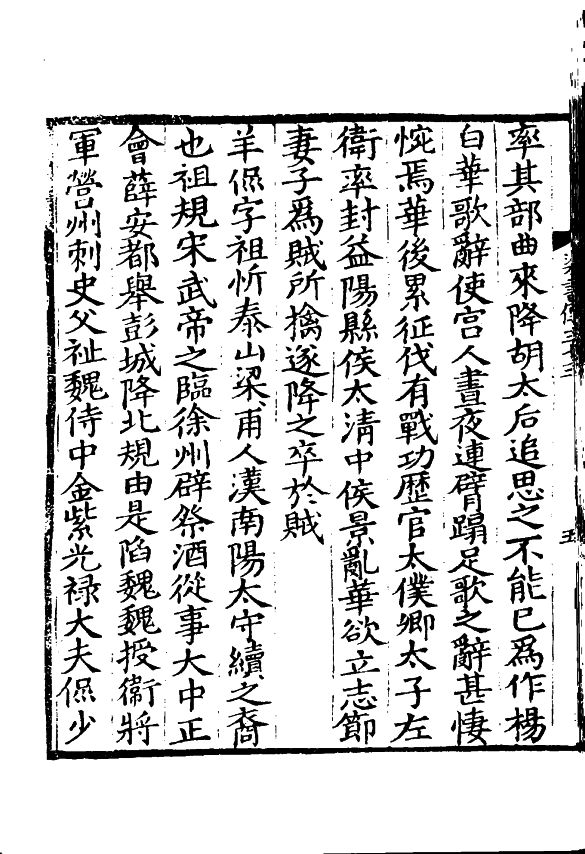 率其部曲來降胡太后追思之不能已爲作楊
白華歌辭使宫人晝夜連臂蹋足歌之辭甚悽
惋焉華後累征伐有戰功歴官太僕卿太子左
衛率封益陽縣侯太清中侯景亂華欲立志節
妻子爲賊所擒遂降之卒於賊
羊侃字祖忻泰山梁甫人漢南陽太守續之裔
也祖規宋武帝之臨徐州辟祭酒從事大中正
會薛安都舉彭城降北規由是陷魏魏授衞將
軍營州刺史父祉魏侍中金紫光禄大夫侃少